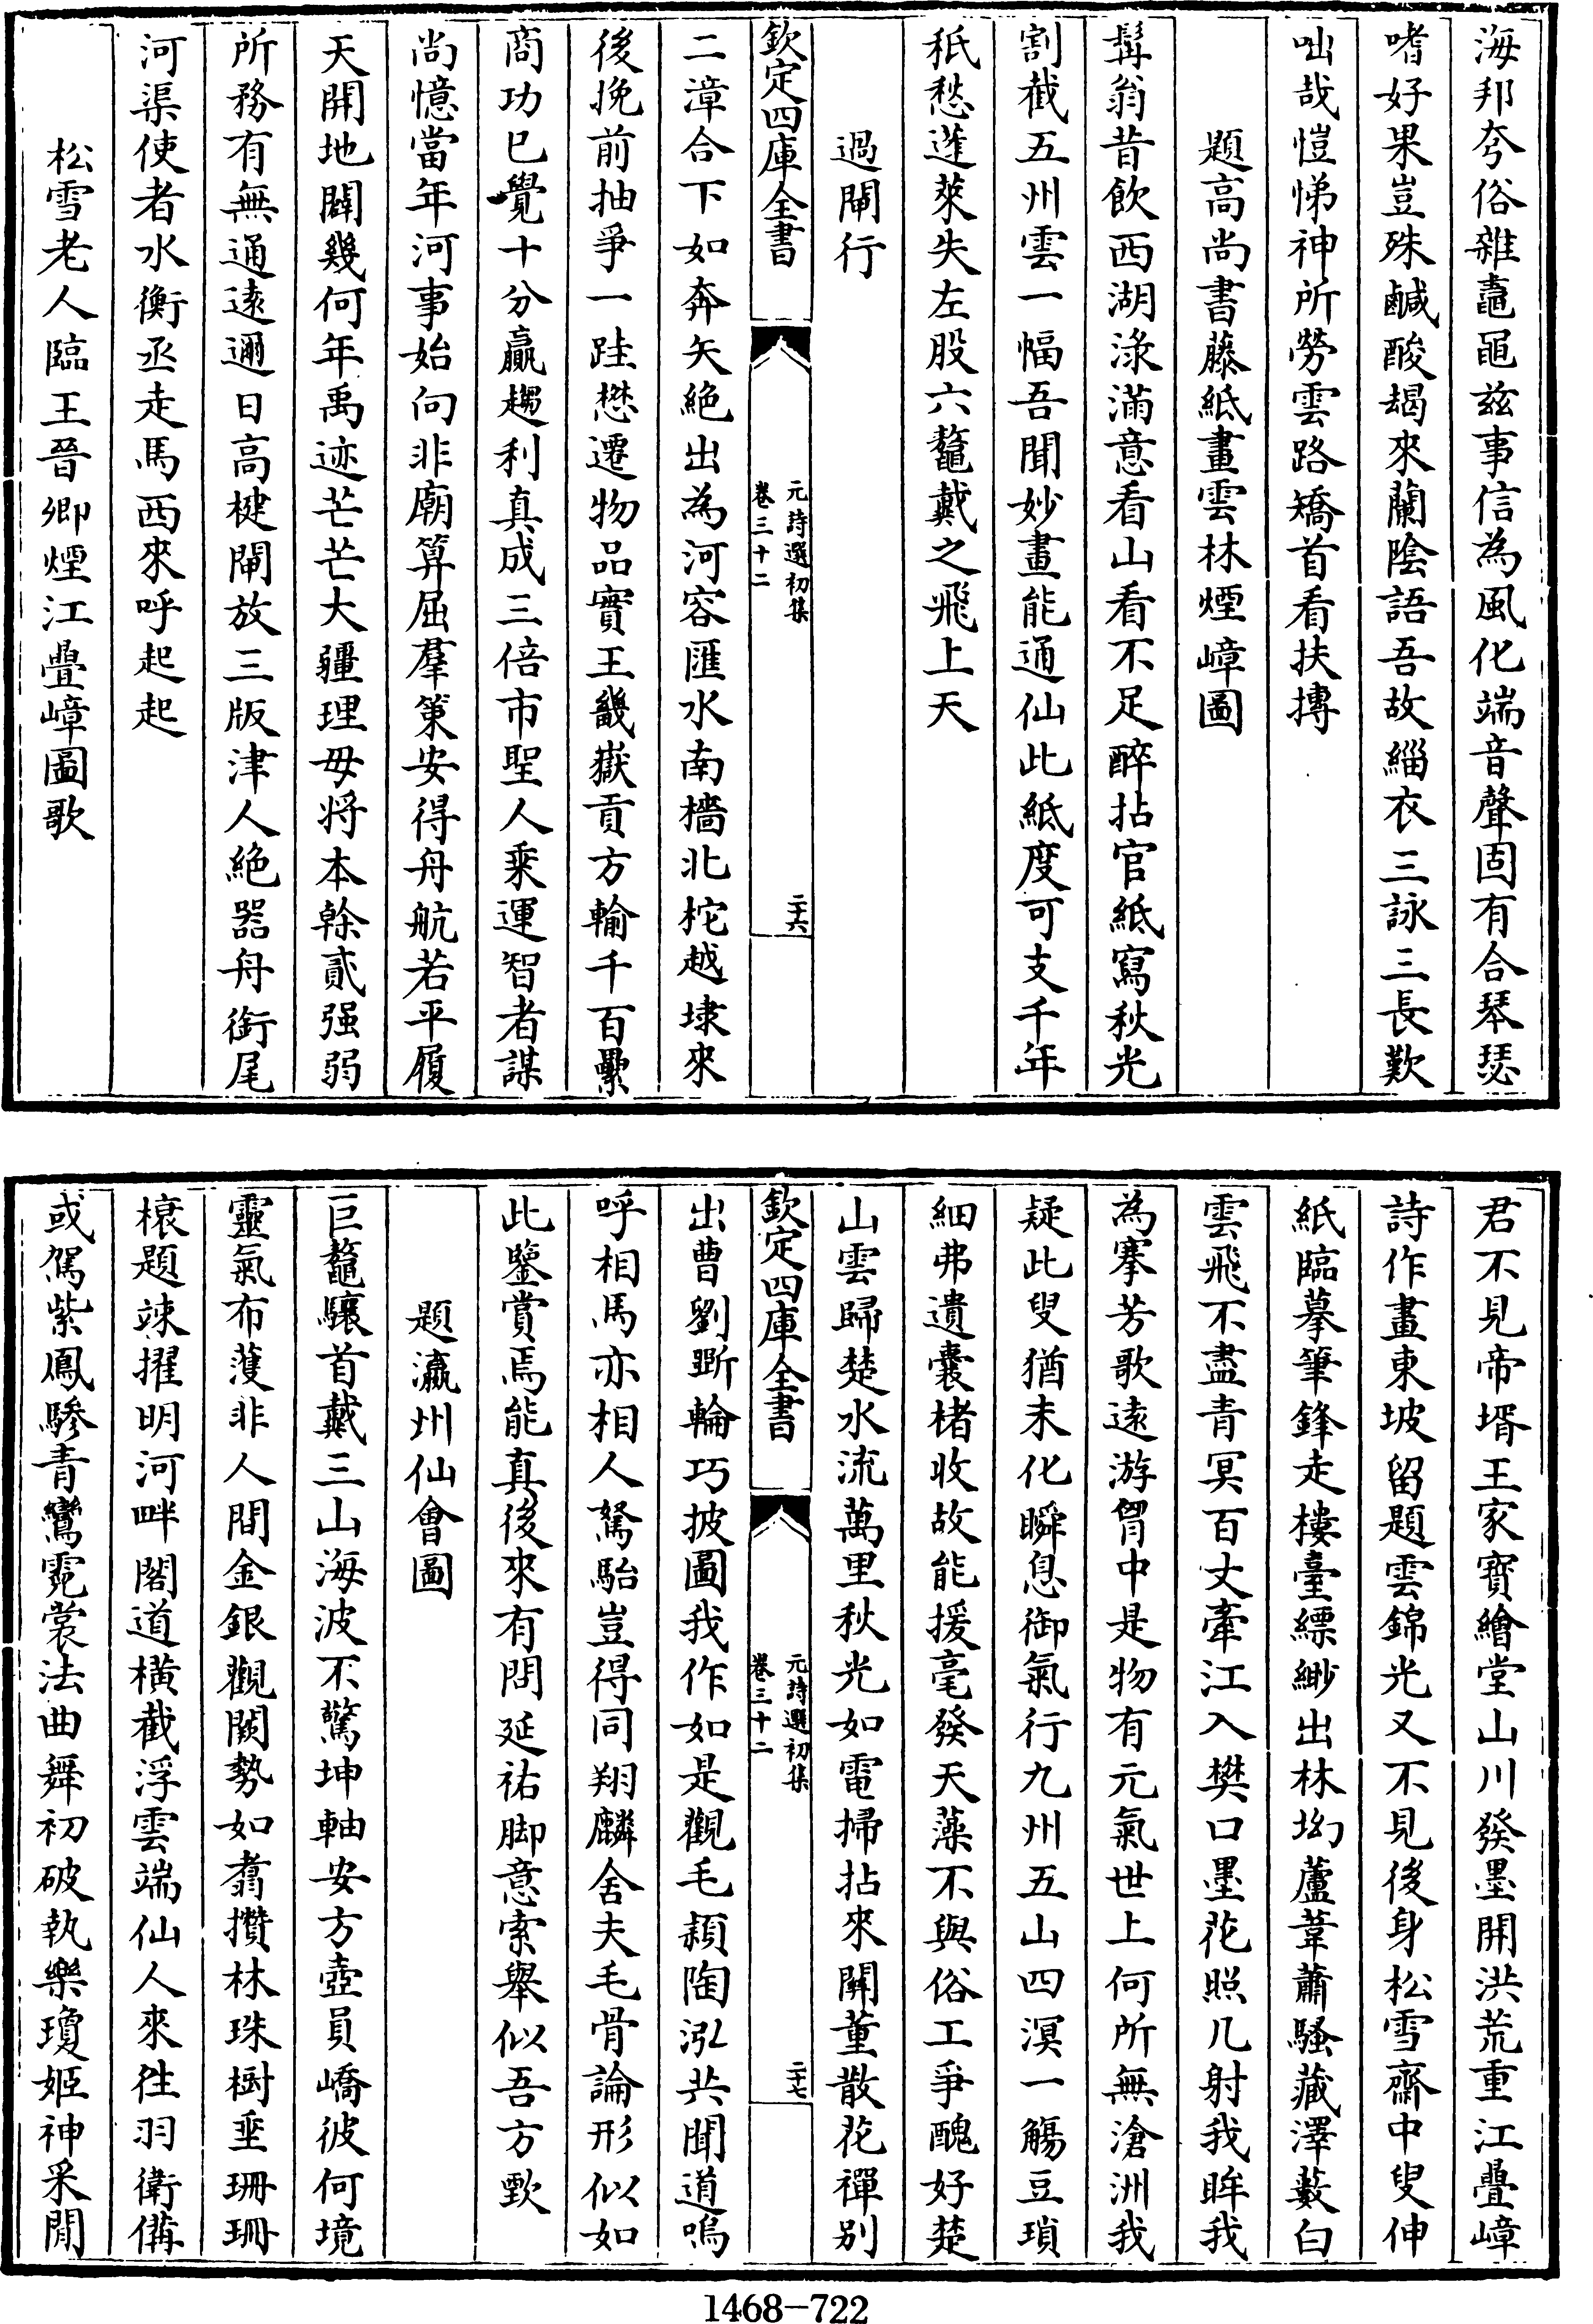 海邦夸俗雜鼃黽兹事信為風化端音聲固有合琴瑟
嗜好果豈殊鹹酸朅來蘭陰語吾故緇衣三詠三長歎
咄哉愷悌神所勞雲路矯首看扶摶
題高尚書藤紙畫雲林煙嶂圖
髯翁昔飲西湖淥滿意看山看不足醉拈官紙寫秋光
割截五州雲一幅吾聞妙畫能通仙此紙度可支千年
秖愁蓬萊失左股六鼇戴之飛上天
過閘行
欽定四庫全書
元詩選初集
卷三十二
二十六
二漳合下如奔矢絶出為河容匯水南檣北柁越埭來
後挽前抽爭一跬懋遷物品實王畿嶽貢方輸千百纍
商功已覺十分贏趨利真成三倍市聖人乘運智者謀
尚憶當年河事始向非廟算屈羣策安得舟航若平履
天開地闢幾何年禹迹芒芒大疆理毋將本榦貳强弱
所務有無通逺邇日高楗閘放三版津人絶器舟銜尾
河渠使者水衡丞走馬西來呼起起
松雪老人臨王晉卿煙江疊嶂圖歌
君不見帝壻王家寶繪堂山川發墨開洪荒重江疊嶂
詩作畫東坡留題雲錦光又不見後身松雪齋中叟伸
紙臨摹筆鋒走樓臺縹緲出林坳蘆葦蕭騷藏澤藪白
雲飛不盡青冥百丈牽江入樊口墨花照几射我眸我
為搴芳歌逺游胷中是物有元氣世上何所無滄洲我
疑此叟猶未化瞬息御氣行九州五山四溟一觴豆瑣
細弗遺囊楮收故能援毫發天藻不與俗工爭醜好楚
山雲歸楚水流萬里秋光如電掃拈來關董散花禪别
欽定四庫全書
元詩選初集
卷三十二
二十七
出曹劉斲輪巧披圖我作如是觀毛穎陶泓共聞道嗚
呼相馬亦相人駑駘豈得同翔麟舍夫毛骨論形似如
此鑒賞焉能真後來有問延祐脚意索舉似吾方歅
題瀛州仙會圖
巨鼇驤首戴三山海波不驚坤軸安方壺員嶠彼何境
靈氣布濩非人間金銀觀闕勢如翥攢林珠樹垂珊珊
榱題竦擢明河畔閣道横截浮雲端仙人來徃羽衛備
或駕紫鳳驂青鸞霓裳法曲舞初破執樂瓊姬神采閒
1468-722